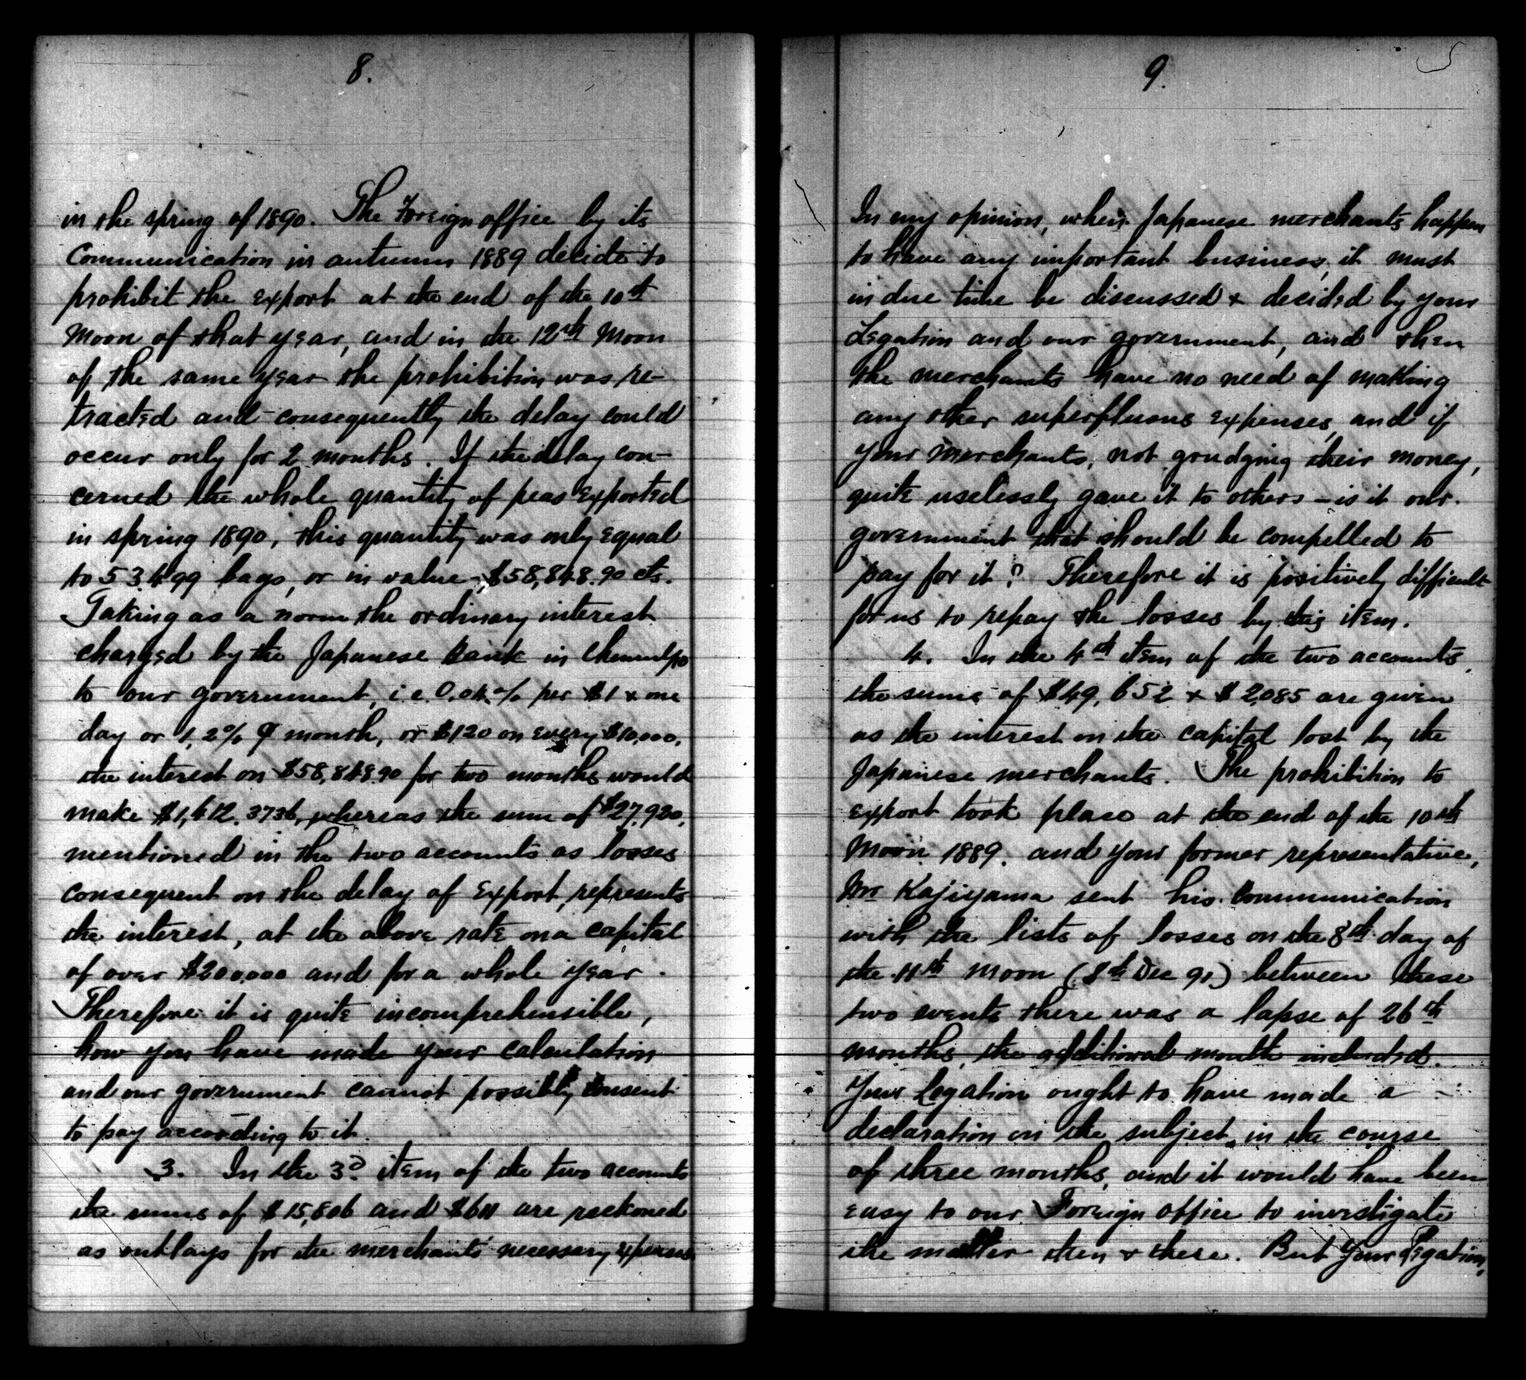 8.
in the spring of 1890. The Foreign office by its
Communication in autumn 1889 decide to
prohibit the export at the end of the 10th
Moon of that year, and in the 12th Moon
of the same year the prohibition was re-
tracted and consequently the delay could
occur only for 2 months. If the delay con-
cerned the whole quantity of peas exported
in spring 1890, this quantity was only equal
to 53,499 bags, or in value $58,848.90 cts.
Taking as a norm the ordinary interest
charged by the Japanese Bank in Chemulpo
to our government, i.e. 0.04% per $1 & one
day or 1,2% month, or $120 on every $10,000,
the interest on $58,848.90 for two months would
make $1,412.3736, whereas the sum of $27,920,
mentioned in the two accounts as losses
consequent on the delay of export, represents
the interest, at the above rate on a capital
of over $200,000 and for a whole year.
Therefore it is quite incomprehensible,
how you have made your calculation
and our government cannot possibly consent
to pay according to it.
3. In the 3d item of the two accounts
the sums of $15,806 and $611 are reckoned
as outlays for the merchants' necessary expenses
9.
5
In my opinion, when Japanese merchants happen
to have any important business, it must
in due time be discussed & decided by your
Legation and our government, and then
the merchants have no need of making
any other superfluous expenses, and if
your merchants, not grudging their money,
quite uselessly gave it to others – is it our
government that should be compelled to
pay for it? Therefore it is positively difficult
for us to repay the losses by this item.
4. In the 4th item of the two accounts,
the sums of $49,652 & $2,085 are given
as the interest on the capital lost by the
Japanese merchants. The prohibition to
export took place at the end of the 10th
Moon 1889. and your former representative,
Mr Kajiyama sent his Communication
with the lists of losses on the 8th day of
the 11th Moon (8th Dec 91) between these
two events there was a lapse of 26th
months, the additional month included.
Your Legation ought to have made a
declaration on the subject, in the course
of three months, and it would have been
easy to our Foreign office to investigate
the matter then & there. But your Legation,